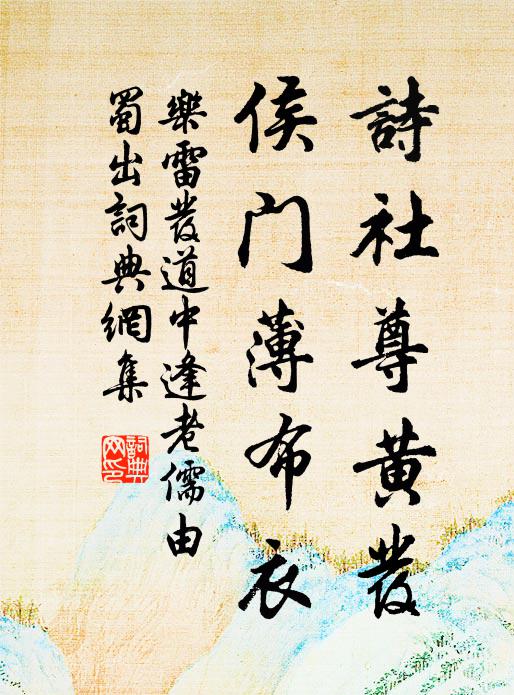 詩社尊黃發
侯门薄布衣
樂雷發道中逢老儒由
蜀出詞典網集
詞典
网印